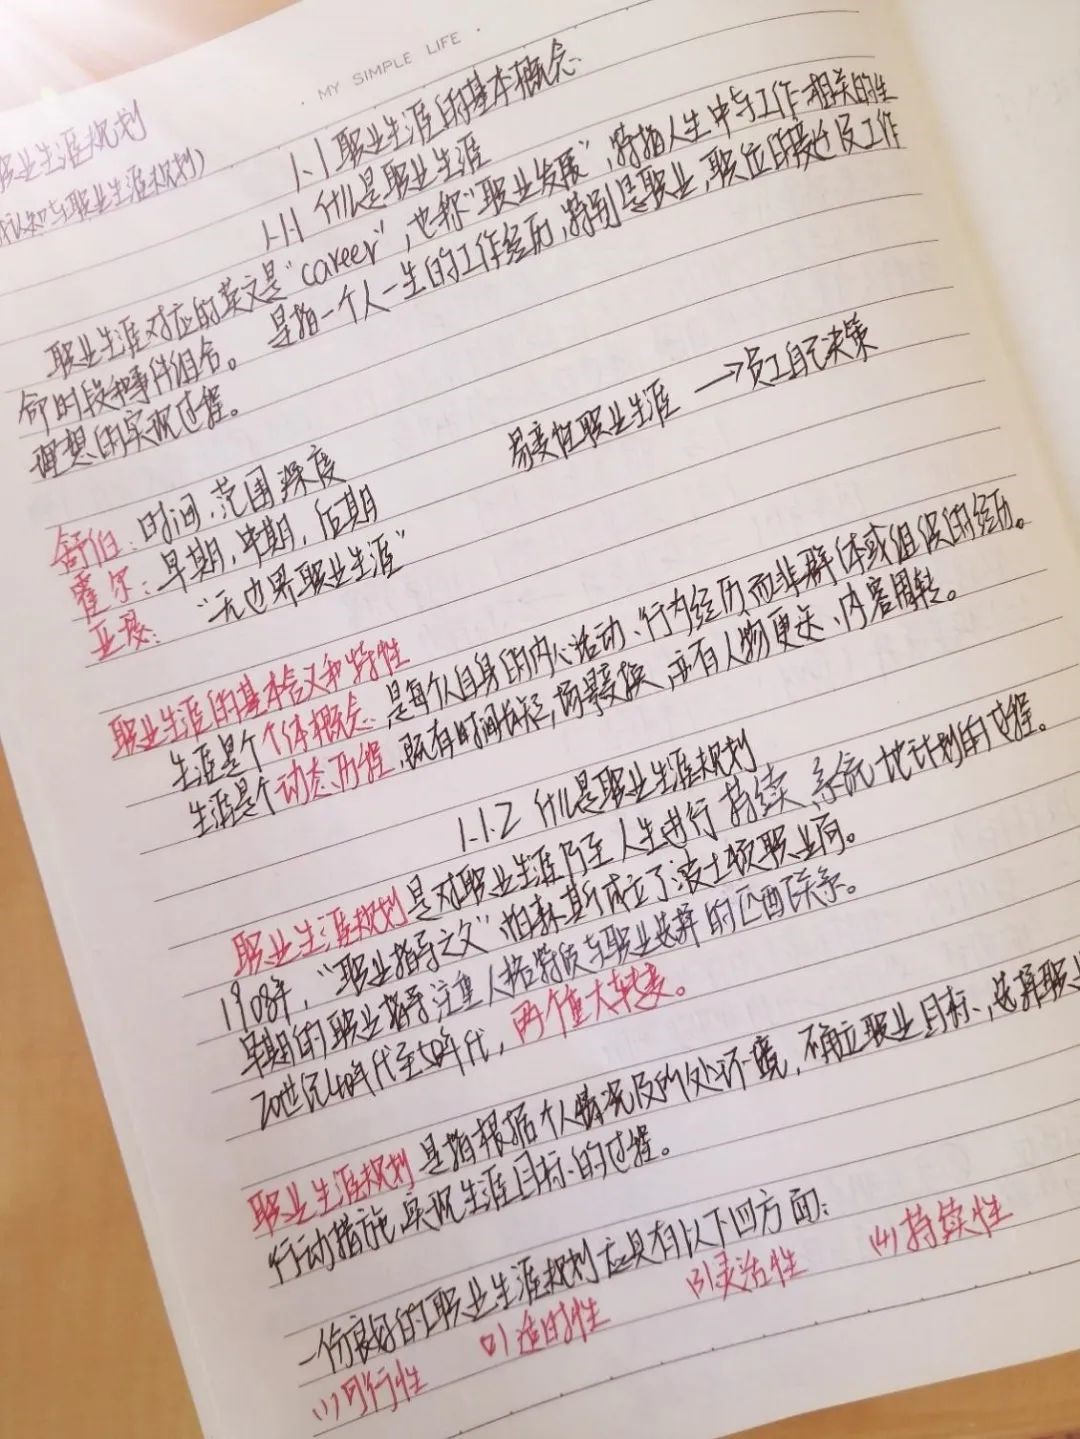 MY SIMPLE LIFE
职业生涯规划
认知与职业生涯规划)
1.1 职业生涯的基本概念
1.1.1 什么是职业生涯
职业生涯对应的英文是"career",也称"职业发展",特指人生中与工作相关的生
命时段和事件组合。 是指一个人一生的工作经历,特别是职业、职位的变迁及工作
理想的实现过程。
舒伯: 时间、范围、深度
霍尔: 早期,中期,后期 易变性职业生涯 →员工自己决策
亚瑟: "无边界职业生涯"
职业生涯的基本含义和特性
生涯是个个体概念,是每个人自身的内心活动、行为经历,而非群体或组织的经历。
生涯是个动态历程,既有时间,场景变换,亦有人物更迭、内容周转。
1.1.2 什么是职业生涯规划
职业生涯规划是对职业生涯乃至人生进行持续系统地计划的过程。
1908年,"职业指导之父"帕森斯成立了波士顿职业局。
早期的职业指导注重人格特质与职业选择的匹配联系。
20世纪40年代至50年代,两个重大转变。
职业生涯规划是指根据个人情况及所处环境,确立职业目标,选择职业
行动措施,实现生涯目标的过程。
一份良好的职业生涯规划应具有以下四方面:
(1)可行性 (2)适时性 (3)灵活性 (4)持续性